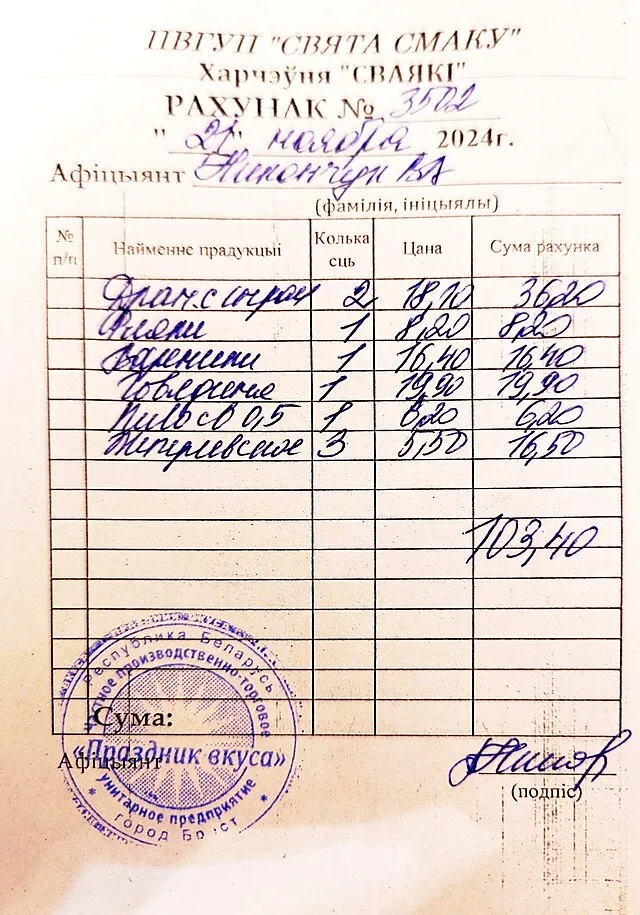 ПВГУП "СВЯТА СМАКУ"
Харчэўня "СВАЯКІ"
РАХУНАК № 3502
"21" ноября 2024г.
Афіцыянт ВА
(фамілія, ініцыялы)
№ п/п Найменне прадукцыі Колькасць Цана Сума рахунка
Дран. с сыром 2 18,10 36,20
1 8,20 8,20
Вареники 1 16,40 16,40
Говядина 1 19,90 19,90
Пиво св 0,5 1 6,20 6,20
3 5,50 16,50
103,40
Сума:
Афіцыянт
(подпіс)
Республика Беларусь
частное производственно-торговое
«Праздник вкуса»
унитарное предприятие
город Брест